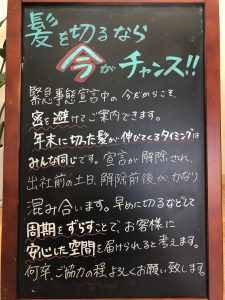 髪を切るなら
今がチャンス!!
緊急事態宣言中の今だからこそ、
密を避けてご案内できます。
年末に切った髪が伸びてくるタイミングは
みんな同じです。宣言が解除され、
出社前の土日、解除前後がかなり
混み合います。早めに切るなどして
周期をずらすことで、お客様に
安心した空間を届けられると考えます。
何卒、ご協力の程、よろしくお願い致します。